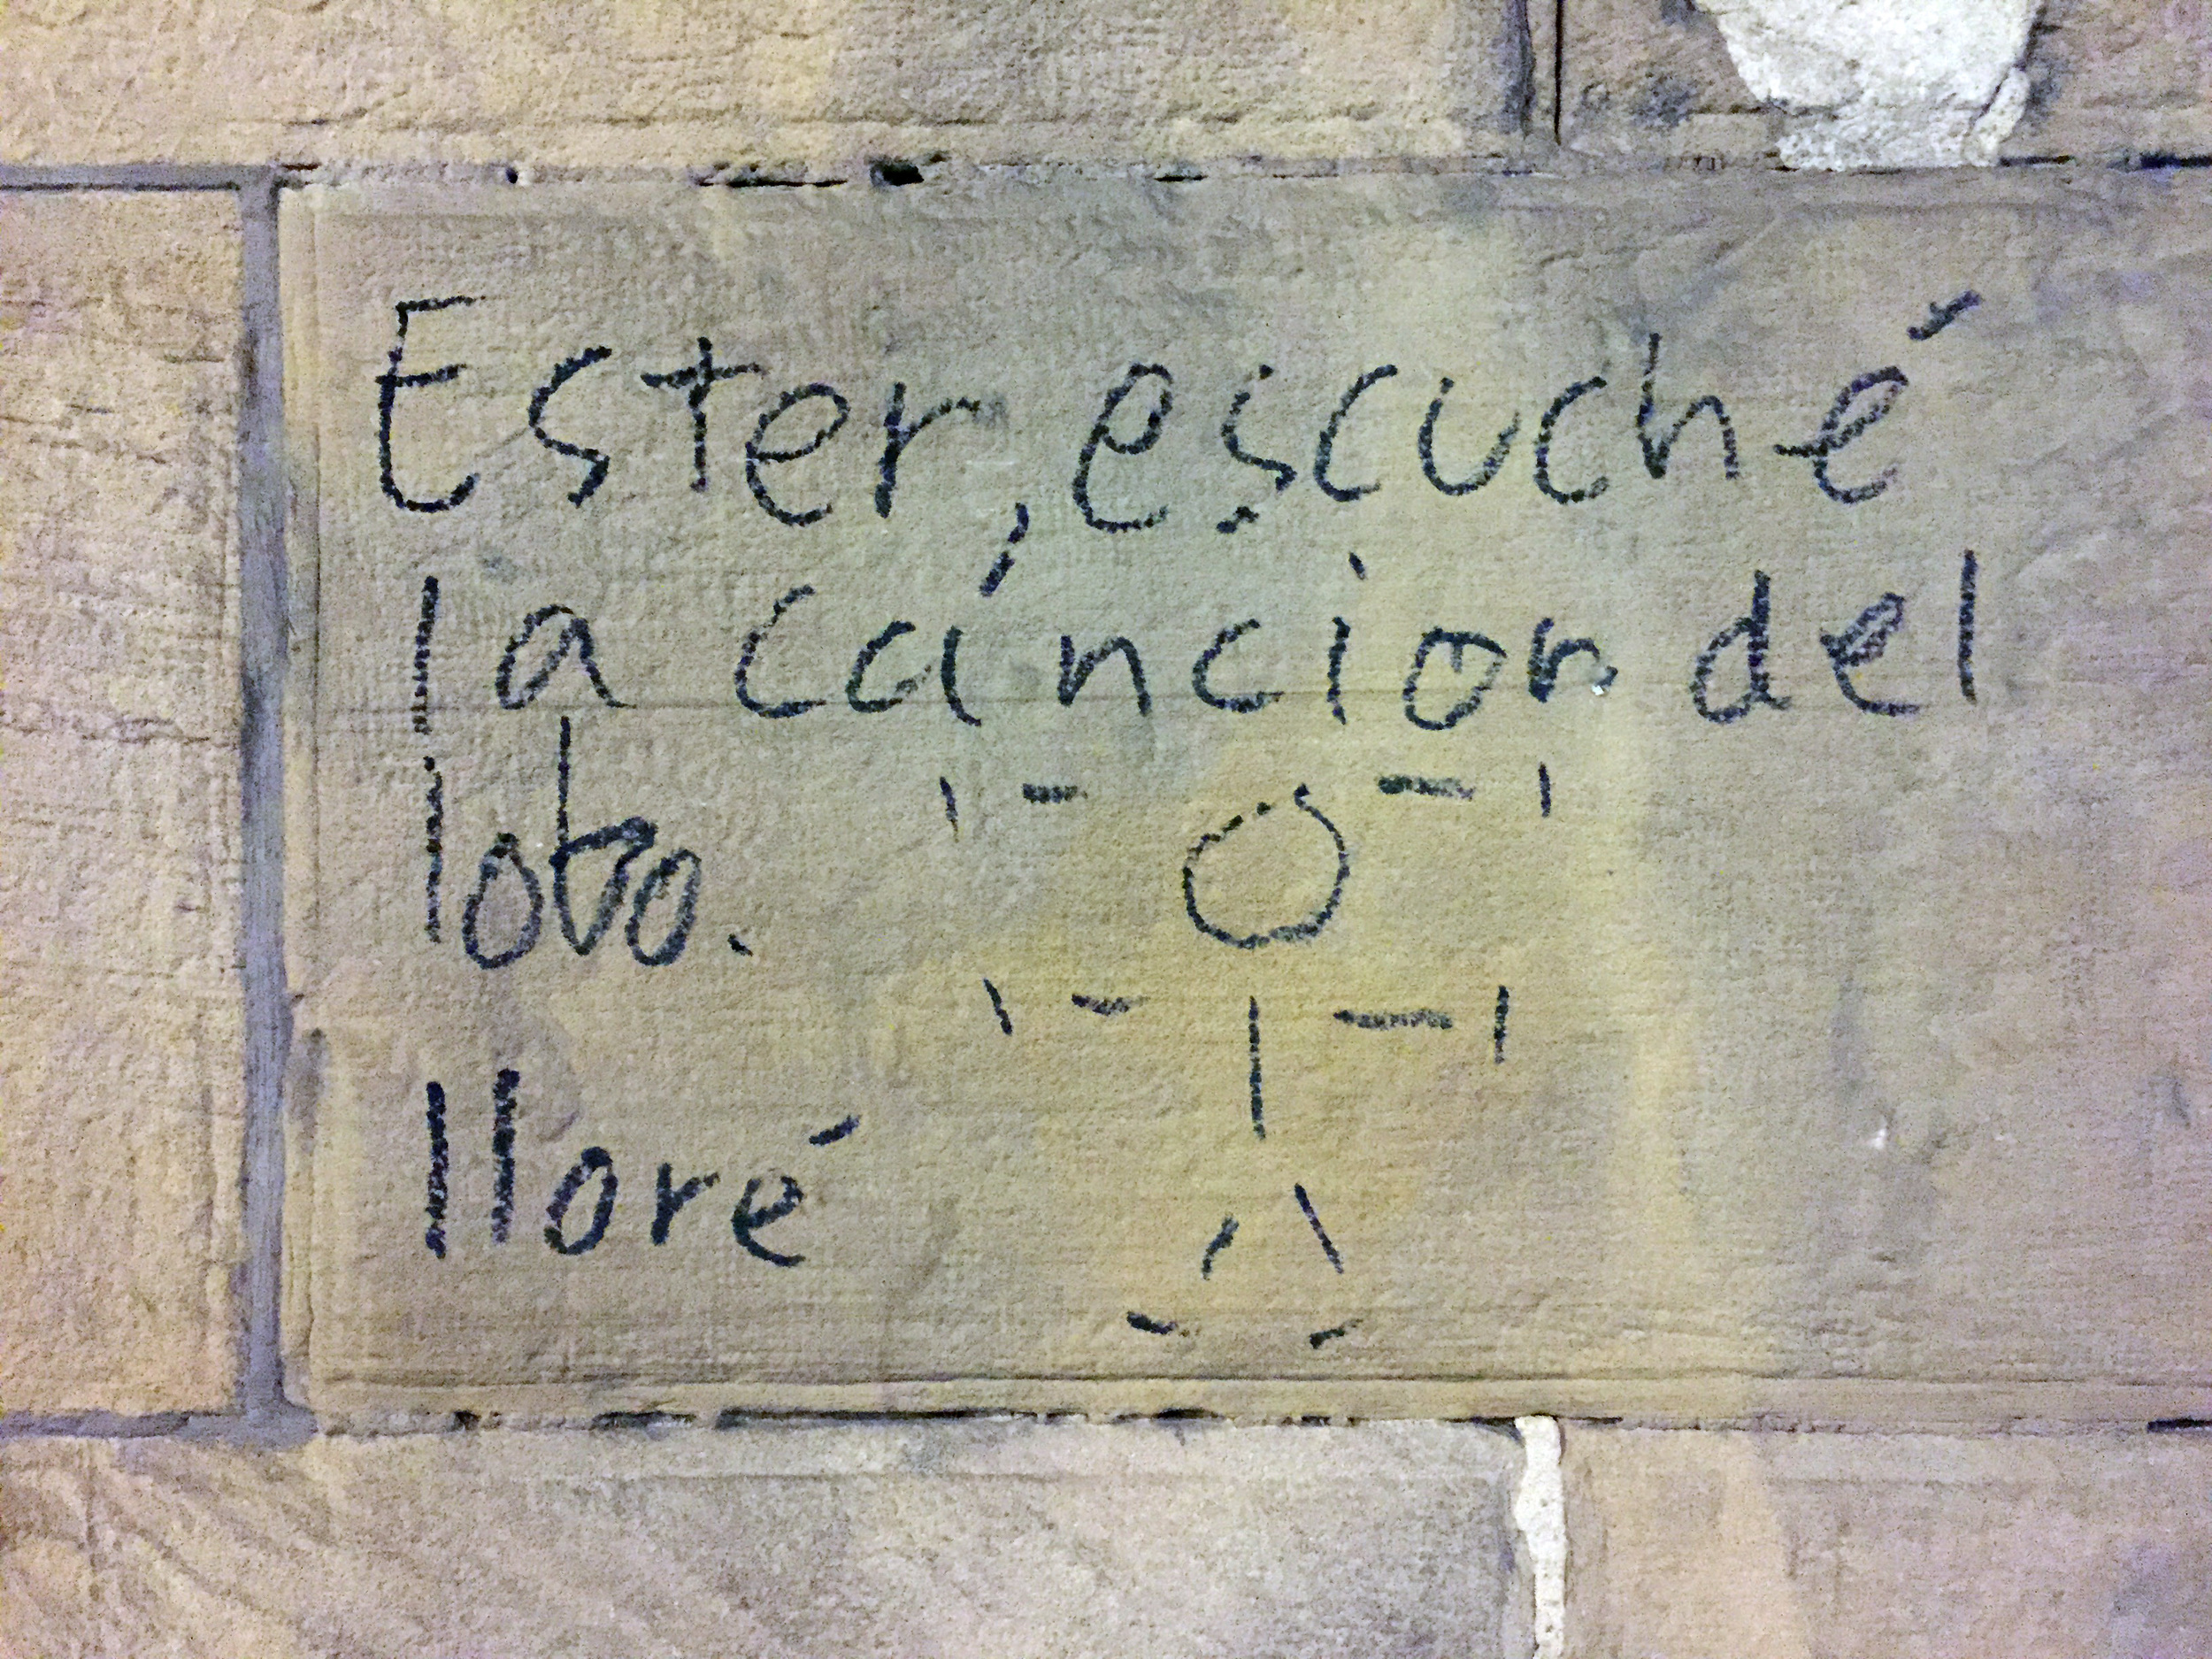 Ester, escuché
la canción del
loto.
lloré